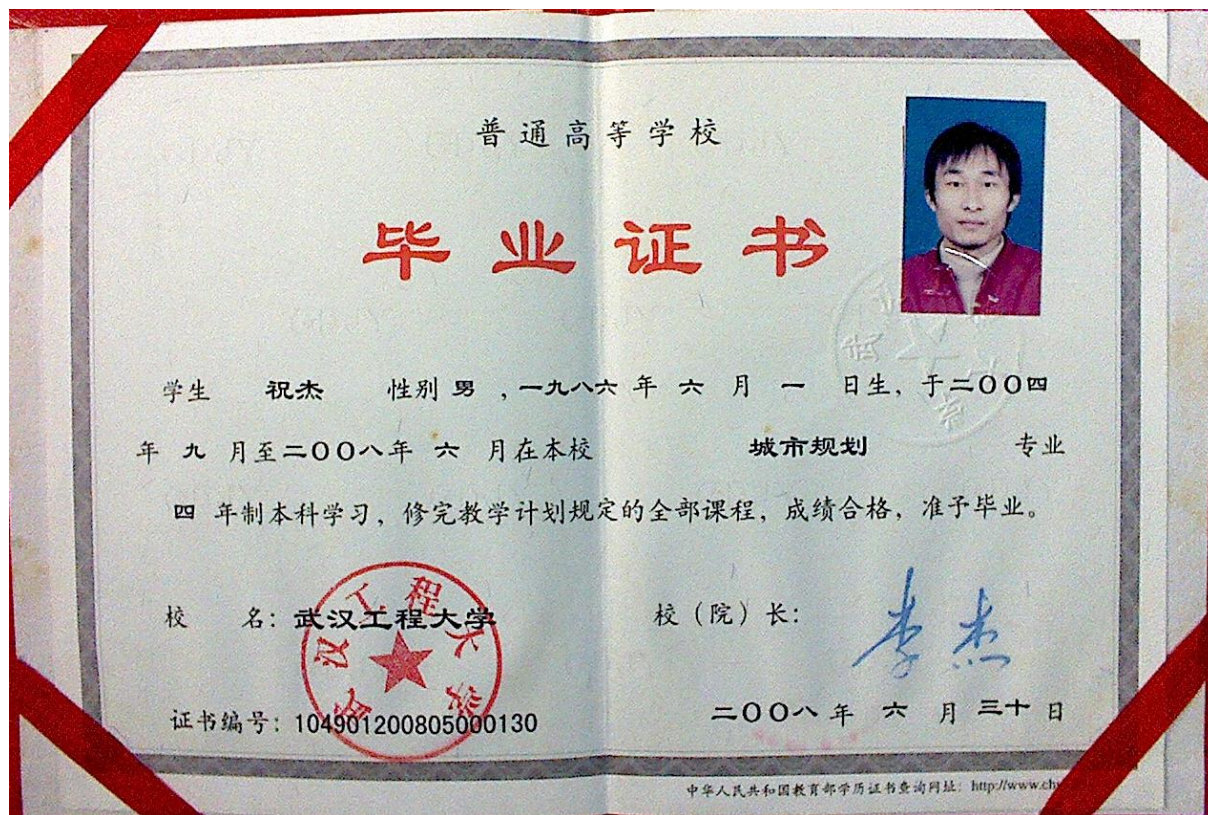 普通高等学校
毕业证书
学生 祝杰 性别 男 ，一九八六 年 六 月 一 日生，于二〇〇四
年 九 月至二〇〇八年 六 月在本校 城市规划 专业
四 年制本科学习，修完教学计划规定的全部课程，成绩合格，准予毕业。
校 名：武汉工程大学
武汉工程大学
校（院）长：李杰
证书编号：104901200805000130
二〇〇八 年 六 月 三十 日
中华人民共和国教育部学历证书查询网址：http://www.ch